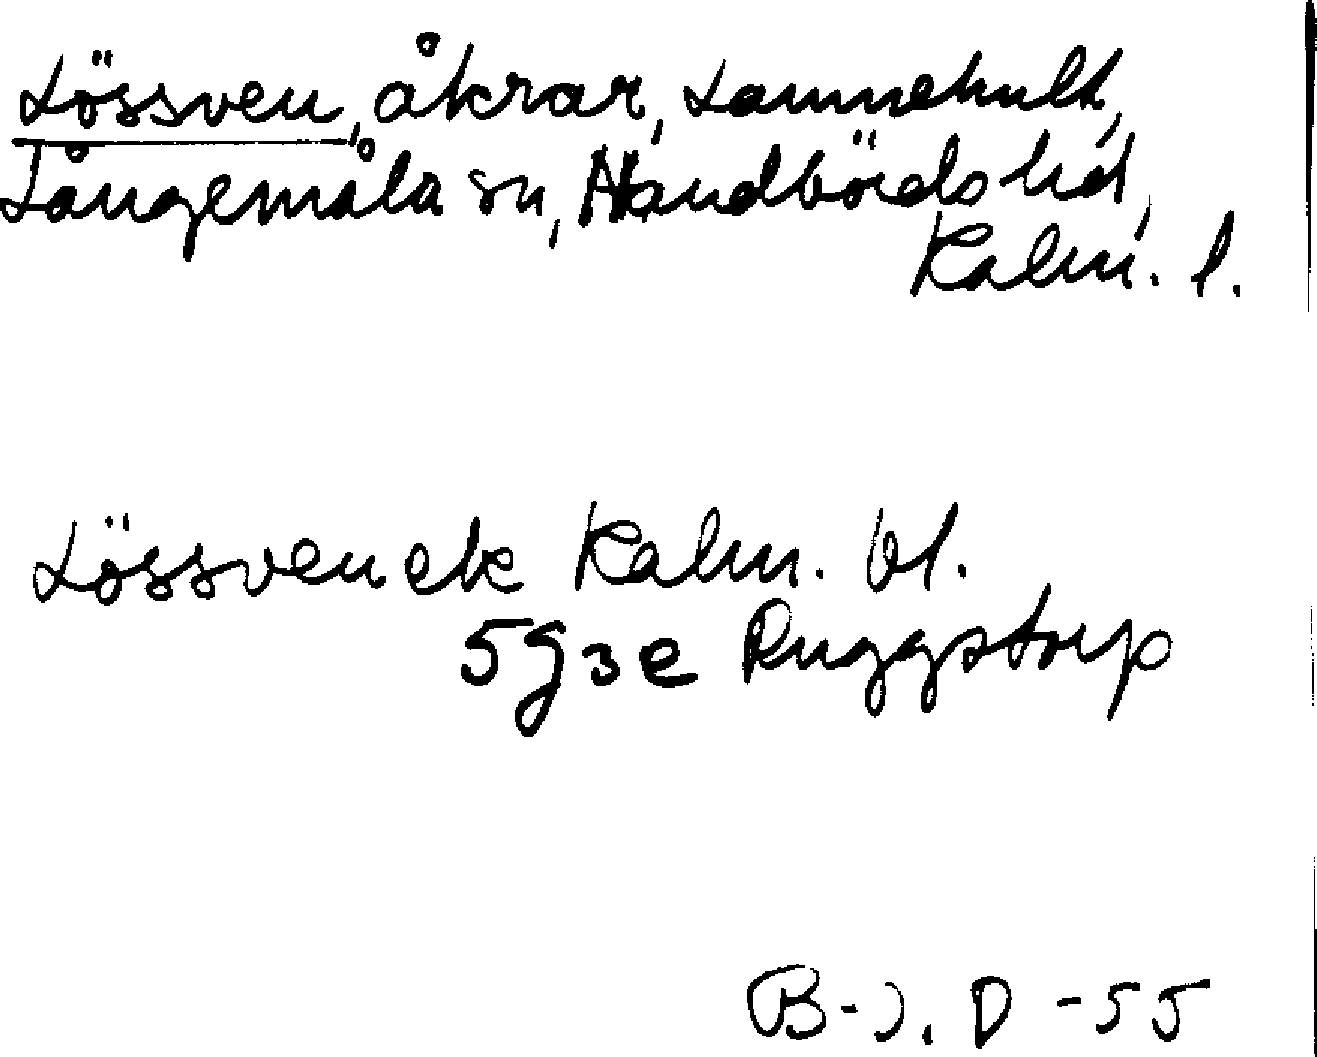 Lössven, åkrar, Lannehult,
Långemåla sn, Handbörds hd,
Kalm. l.
Lössven ek Kalm. bl.
5g3e Ruggstorp
B-J. D -55